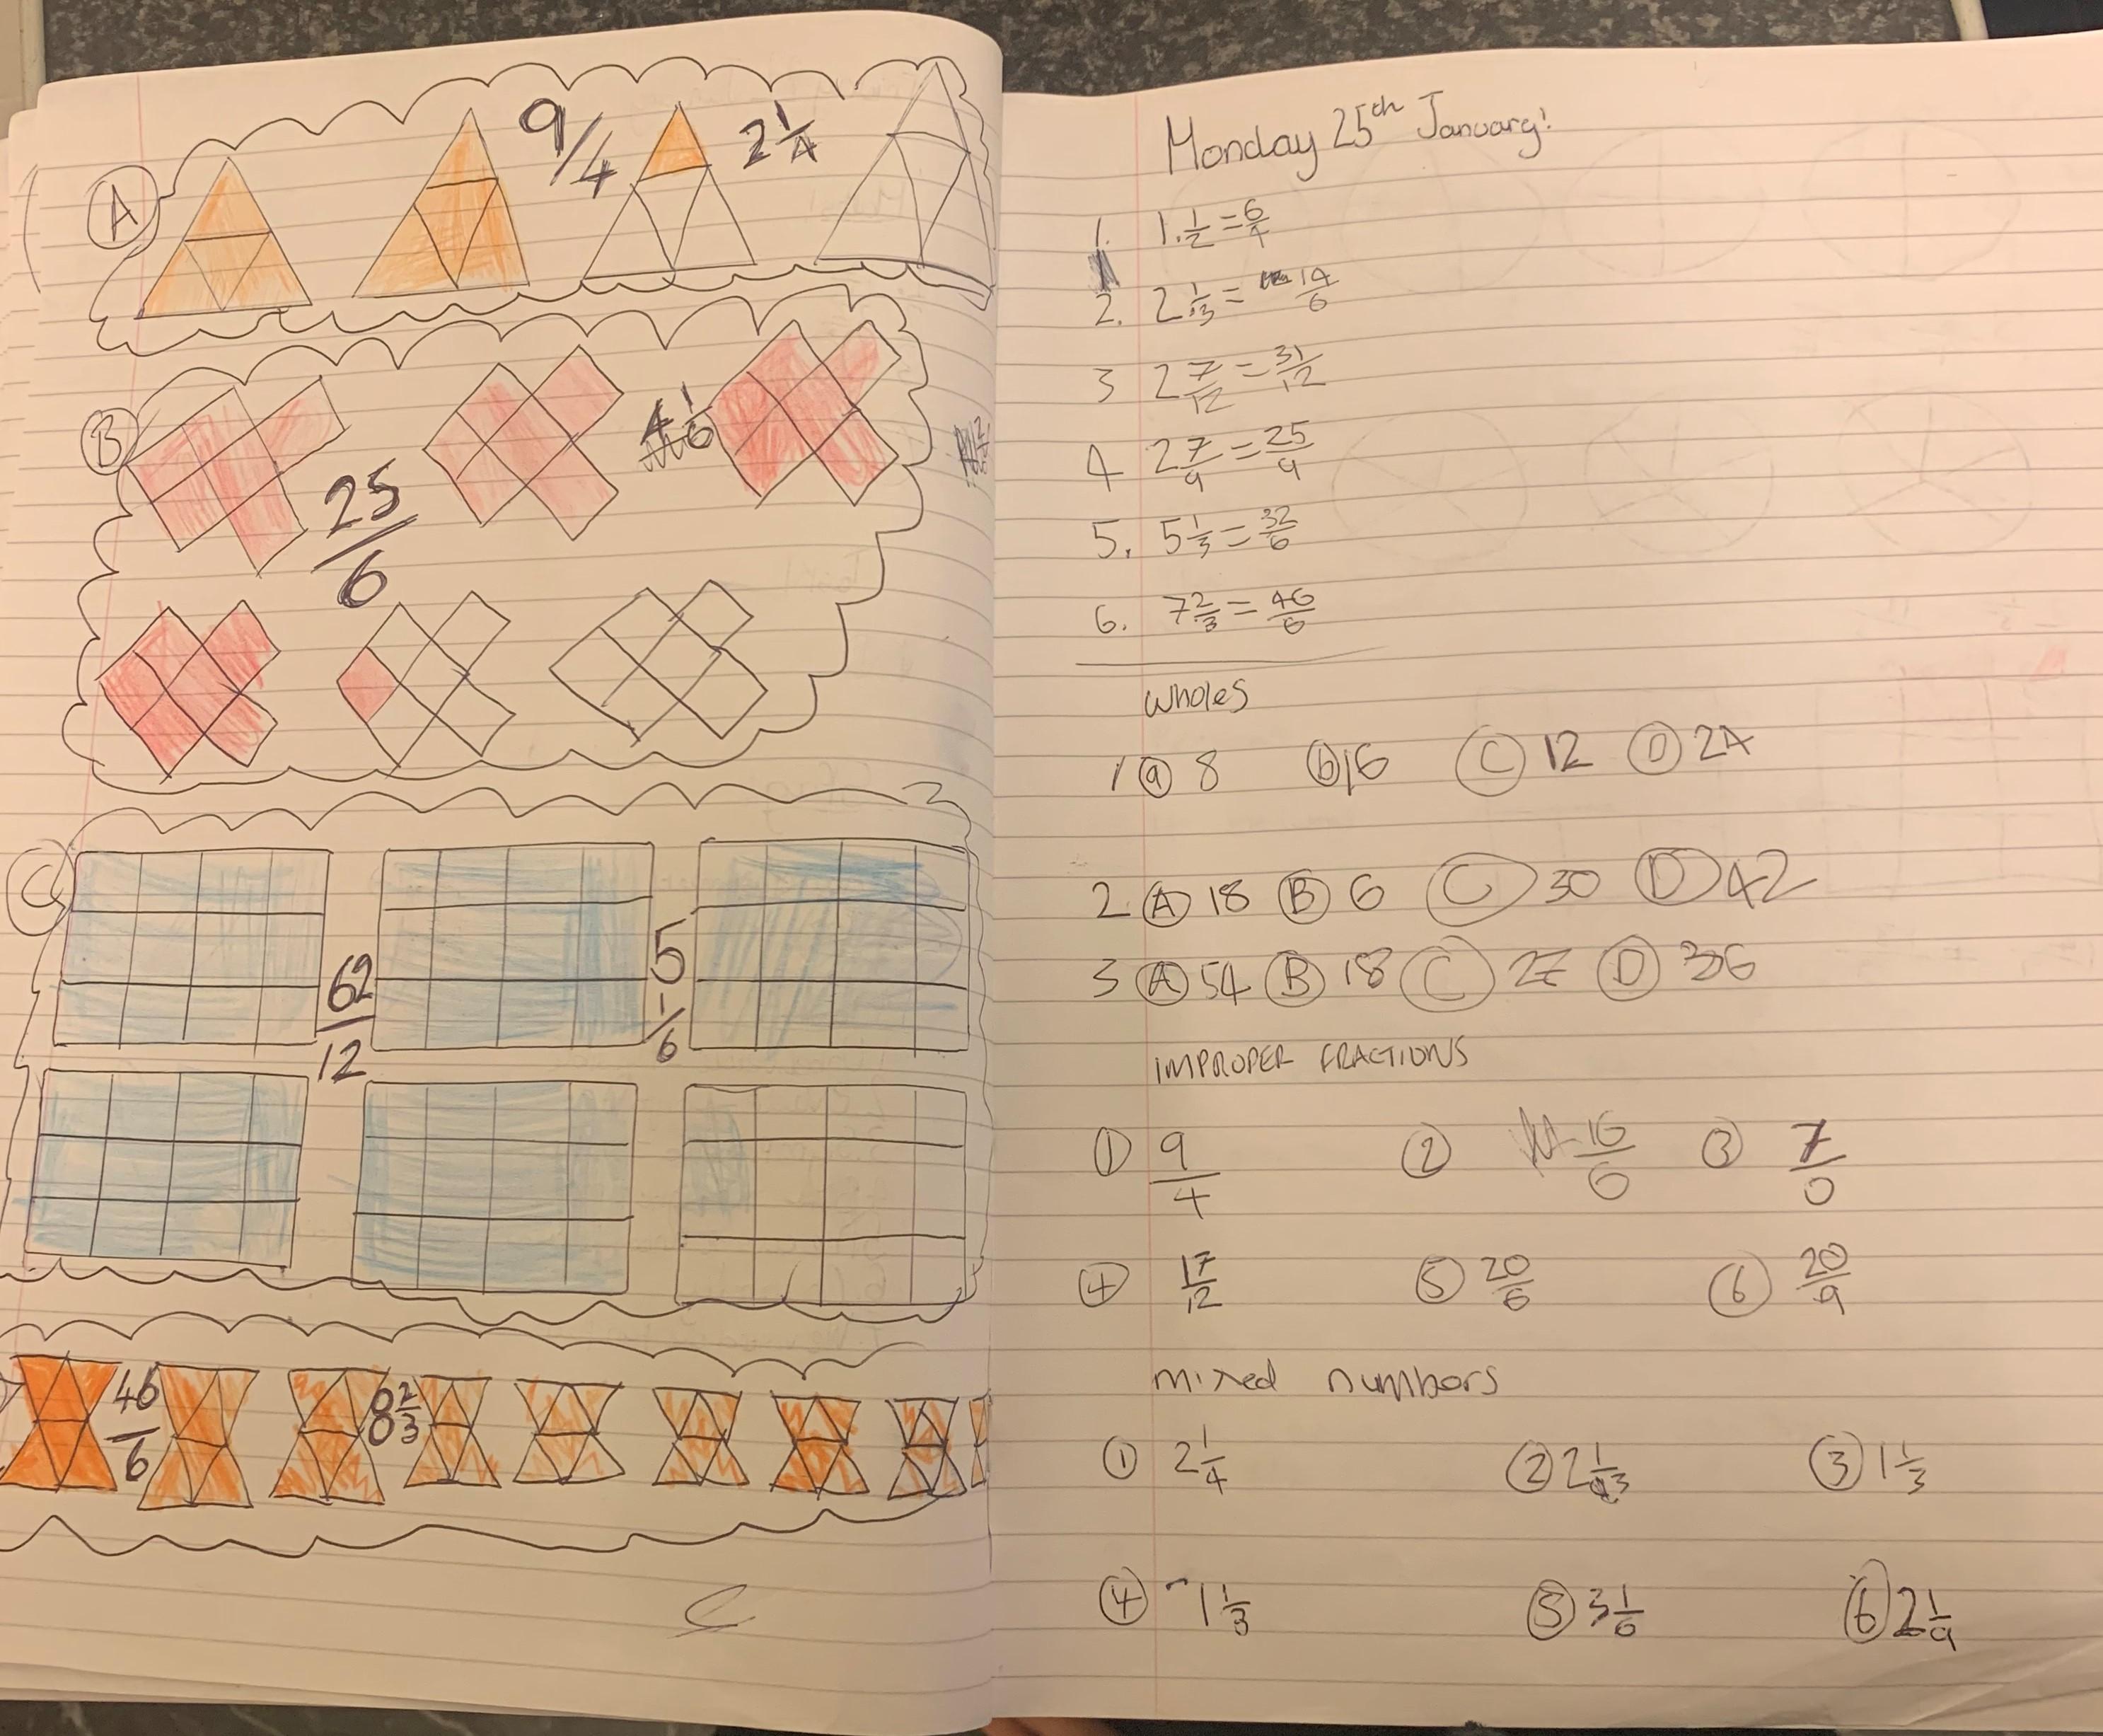 A
9/4
2 1/4
B
4 1/6
25/6
C
62/12
5 1/6
46/6
8 2/3
Monday 25th January!
1. 1. 1/2 = 6/4
2. 2 1/3 = 14/6
3 2 7/12 = 31/12
4 2 7/9 = 25/9
5. 5 1/3 = 32/6
6. 7 2/3 = 46/6
wholes
1 a 8 b 16 C 12 D 24
2. A 18 B 6 C 30 D 42
3 A 54 B 18 C 27 D 36
IMPROPER FRACTIONS
1 9/4 2 16/6 3 7/0
4 17/12 5 20/6 6 20/9
mixed numbers
1 2 1/4 2 2 1/3 3 1 1/3
4 1 1/3 5 3 1/6 6 2 1/9